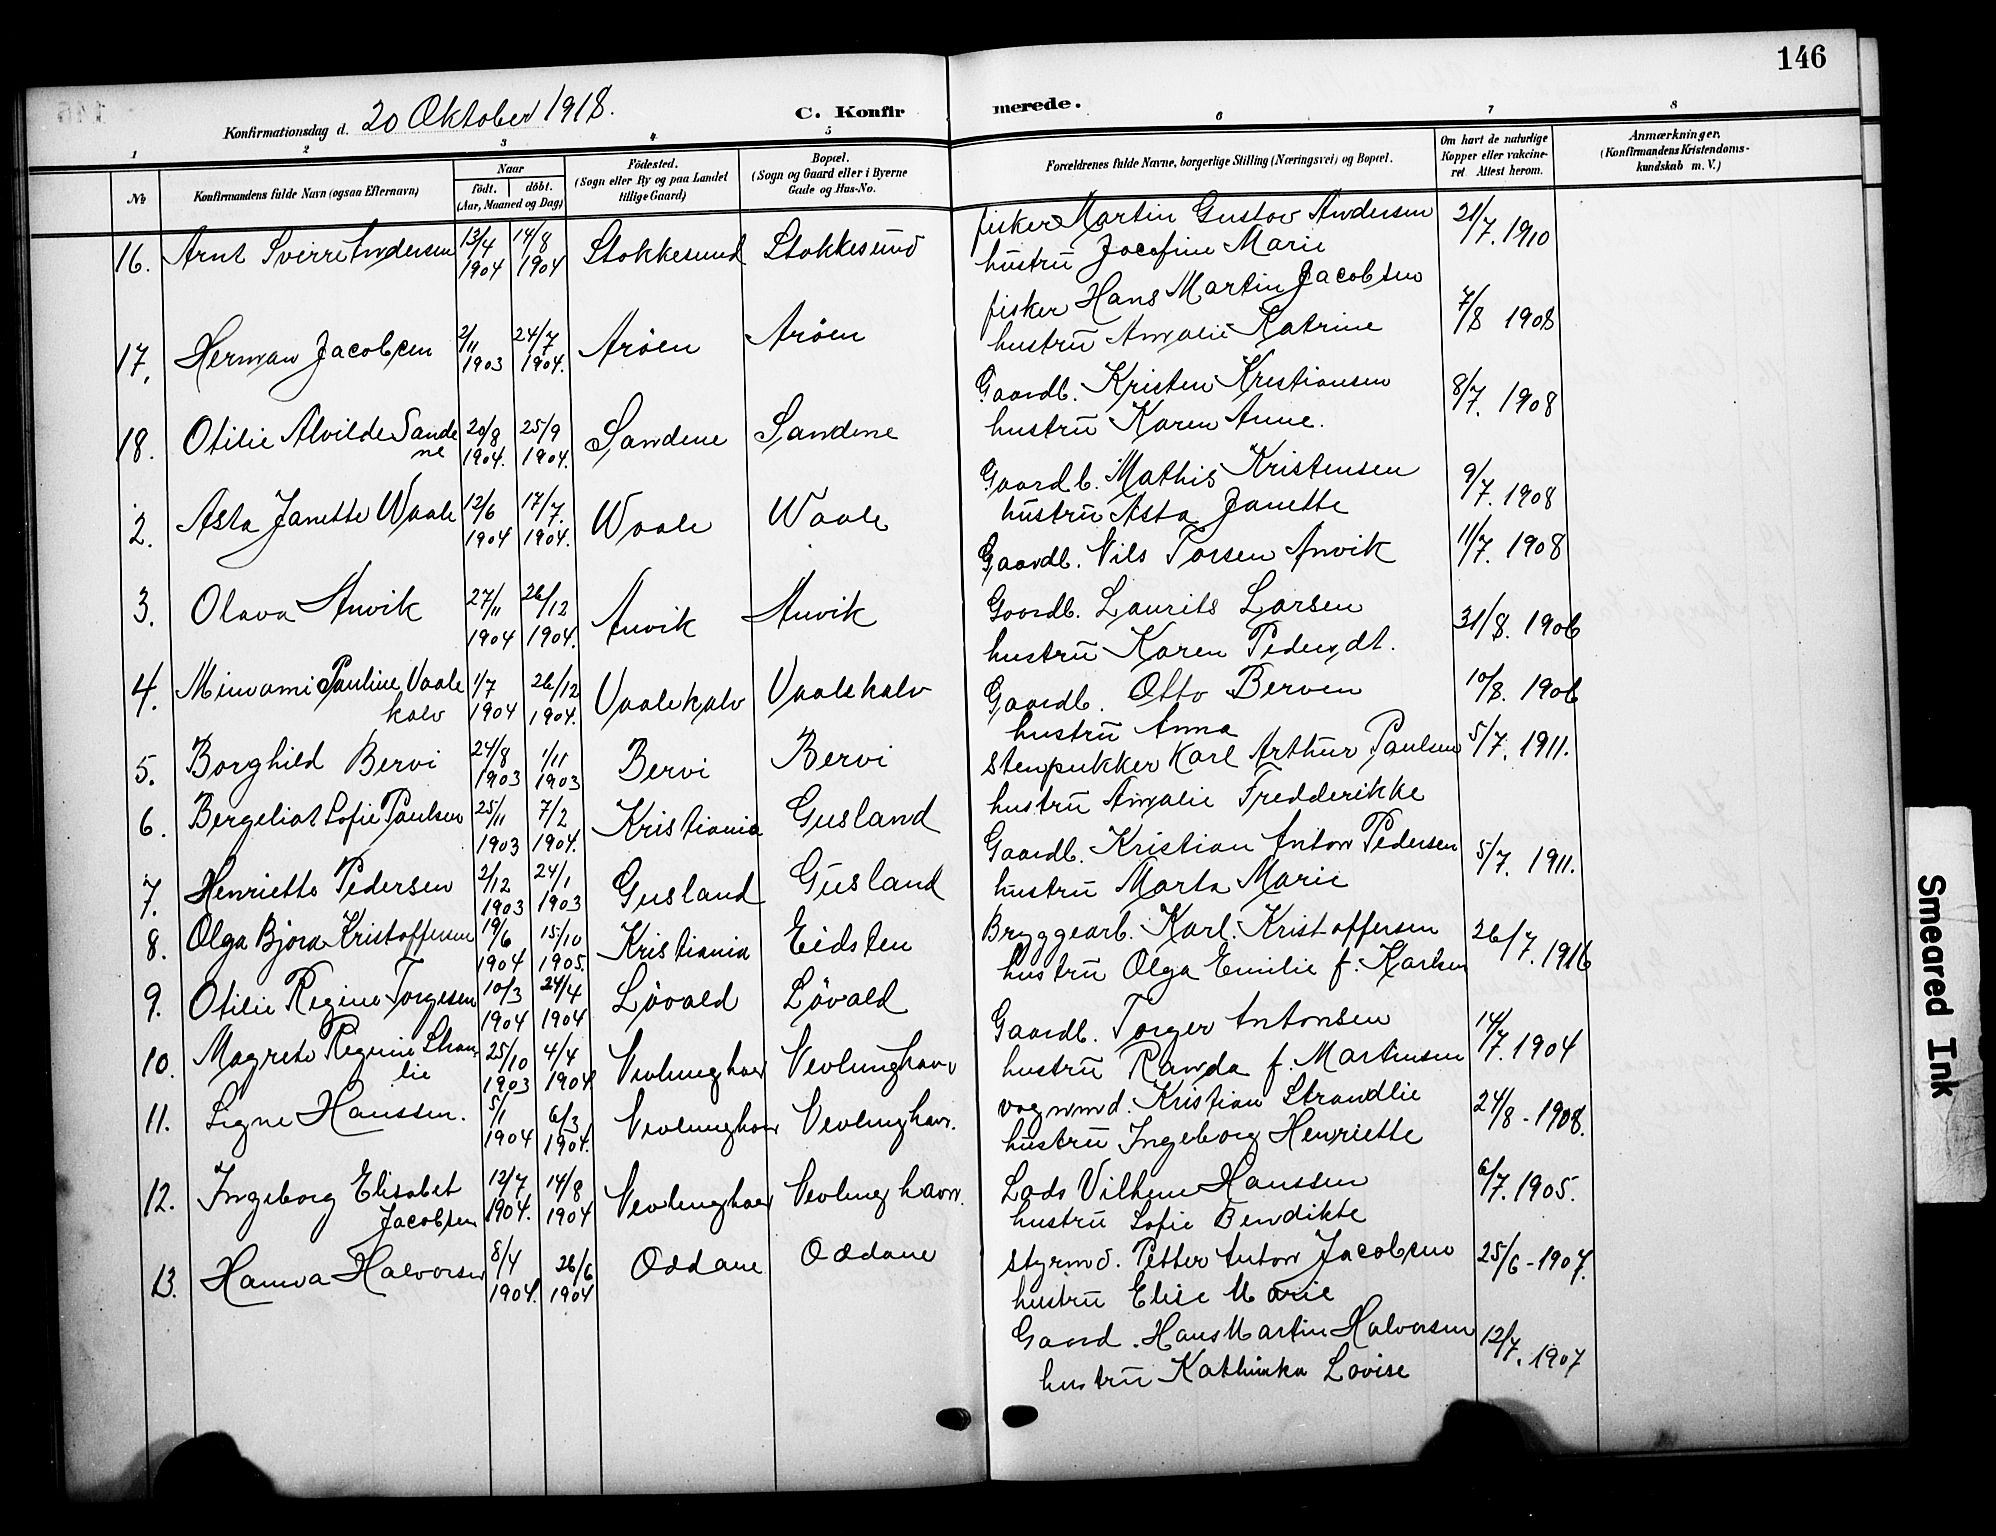 146
Konfirmationsdag d. 20 Oktober 1918.
C. Konfirmerede.
1 2 3 4 5 6 7 8
No
Konfirmandens fulde Navn (ogsaa Efternavn)
Naar
født. døbt.
(Aar, Maaned og Dag)
Fødested.
(Sogn eller By og paa Landet
tillige Gaard)
Bopæl.
(Sogn og Gaard eller i Byerne
Gade og Hus-No.
Forældrenes fulde Navne, borgerlige Stilling (Næringsvei) og Bopæl.
Om havt de naturlige
Kopper eller vakcine-
ret. Attest herom.
Anmærkninger.
(Konfirmandens Kristendoms-
kundskab m. V.)
16. Arnt Sverre Andersen 13/4 1904 14/8 1904 Stokkesund Stokkesund fisker Martin Gustav Andersen 21/7. 1910
hustru Josefine Marie
17. Herman Jacobsen 2/11 1903 24/7 1904. Arøen Arøen fisker Hans Martin Jacobsen 7/8 1908
hustru Amalie Katrine
18. Otilie Alvilde Sandene 20/8 1904. 25/9 1904. Sandene Sandene Gaardb. Kristen Kristiansen 8/7. 1908
hustru Karen Anne.
2. Asta Janette Waale 12/6 1904 17/7. 1904. Waale Waale Gaardb. Mathis Kristensen 9/7. 1908
hustru Asta Janette
3. Olava Anvik 27/11 1904 26/12 1904. Anvik Anvik Gaardb. Nils Anvik 11/7. 1908
4. Pauline Vaalekalv 1/7 1904 26/12 1904. Vaalekalv Vaalekalv Gaardb. Laurits Larsen 31/8. 1906
hustru Karen Pedersdt.
5. Borghild Bervi 24/8 1903 1/11 1903 Bervi Bervi Gaardb. Otto Berven 10/8. 1906
hustru Anna
6. Bergeliot Sofie Paulsen 25/11 1903 7/2 1904. Kristiania Gusland stenpukker Karl Arthur Paulsen 5/7. 1911.
hustru Amalie Fredderikke
7. Henriette Pedersen 2/12 1903 24/1 1903 Gusland Gusland Gaardb. Kristian Anton Pedersen 5/7. 1911.
hustru Marta Marie
8. Olga Bjora Kristoffersen 19/6 1904 15/10 1905. Kristiania Eidsten Bryggearb. Karl. Kristoffersen 26/7. 1916
hustru Olga Emilie f. Karlsen
9. Otilie Regine Torgesen 10/3 1904 24/4 1904 Løvald Løvald Gaardb. Torger Antonsen 14/7. 1904
hustru Randa f. Martinsen
10. Magrete Regine Strandlie 25/10 1903 4/4 1904 Nevlunghavn Nevlunghavn vognmd. Kristian Strandlie 24/8 - 1908.
hustru Ingeborg Henriette
11. Signe Hanssen. 5/1 1904 6/3 1904. Nevlunghavn Nevlunghavn. Lods Vilhem Hanssen 6/7. 1905.
hustru Sofie Bendikte
12. Ingeborg Elisabet Jacobsen 12/7 1904. 14/8 1904 Nevlunghavn Nevlunghavn. styrmd. Petter Anton Jacobsen 25/6 - 1907.
hustru Elise Marie
13. Hanna Halvorsen 8/4 1904. 26/6 1904 Oddane Oddane Gaard. Hans Martin Halvorsen 12/7. 1907
hustru Kathinka Lovise
Smeared Ink